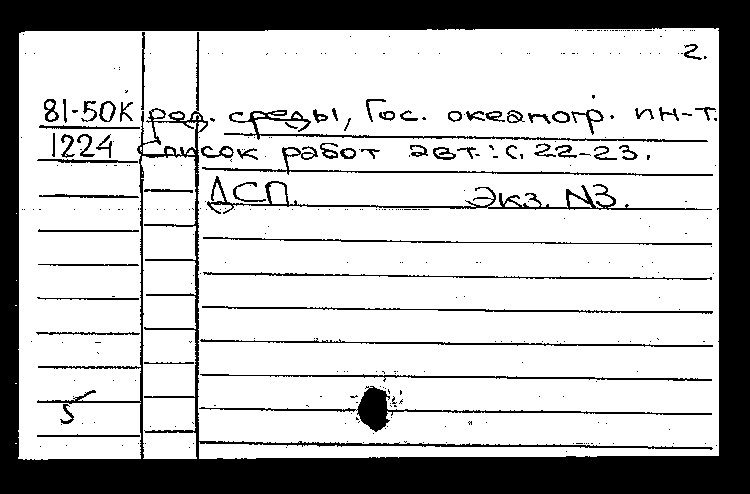 2.
81-50К род. среды, Гос. океаногр. ин-т.
1224 Список работ авт.: с. 22-23.
ДСП. Экз. N3.
5